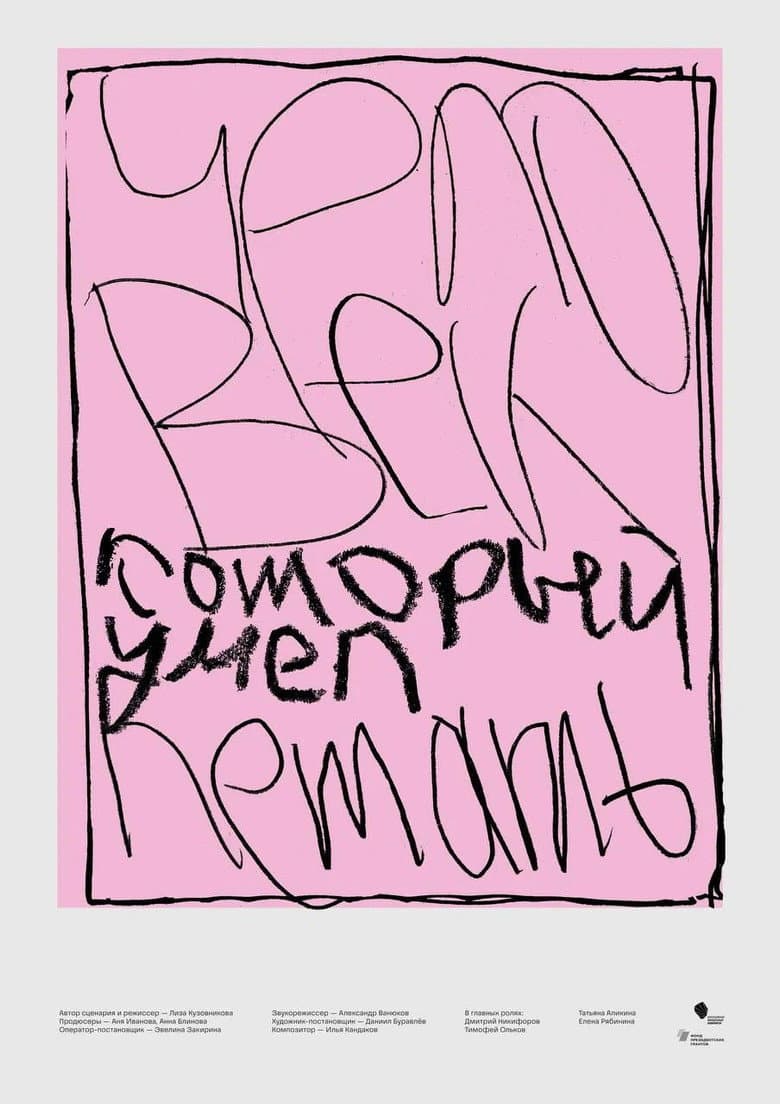 чело
век
который
умел
летать
Автор сценария и режиссер — Лиза Кузовникова
Продюсеры — Аня Иванова, Анна Блинова
Оператор-постановщик — Эвелина Закирина
Звукорежиссер — Александр Ванюков
Художник-постановщик — Даниил Буравлёв
Композитор — Илья Кандаков
В главных ролях:
Дмитрий Никифоров
Тимофей Ольков
Татьяна Аликина
Елена Рябинина
ФОНД
ПРЕЗИДЕНТСКИХ
ГРАНТОВ